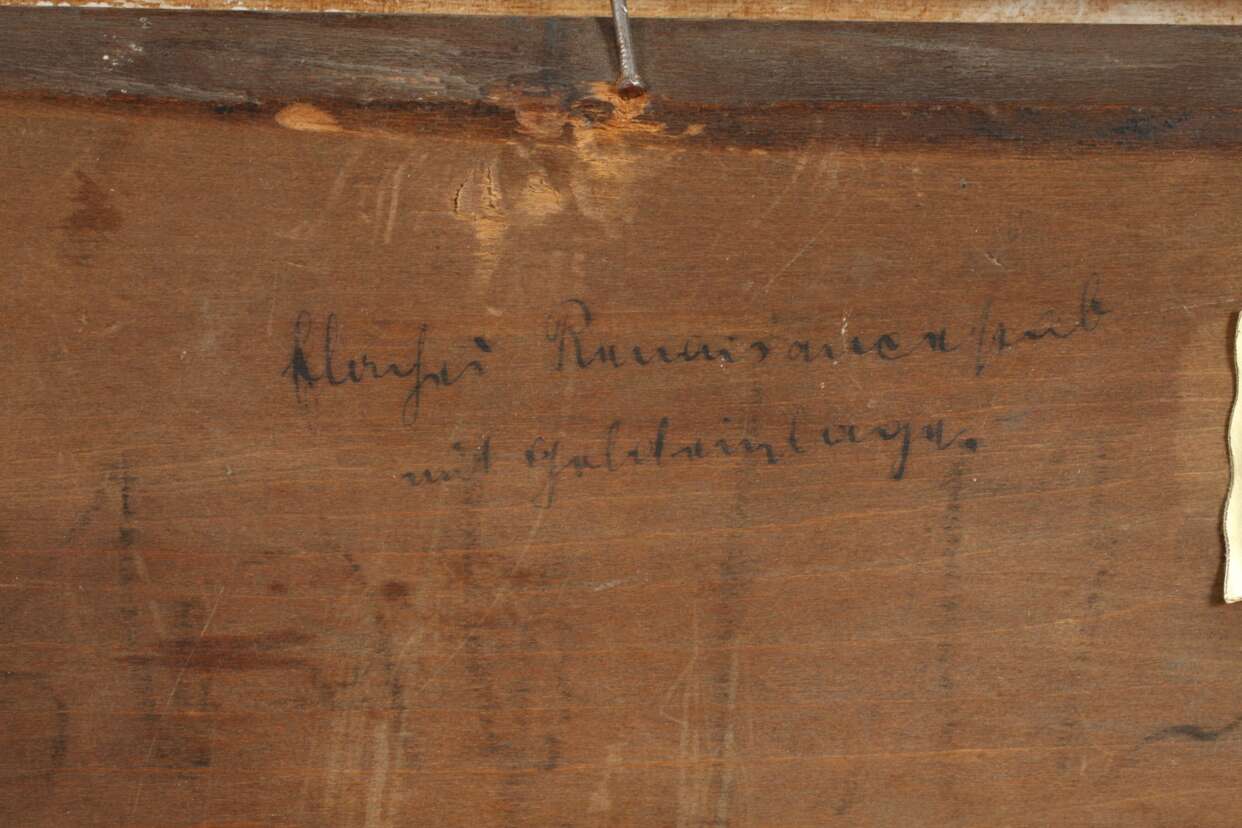 flacher Renaisancestab
mit Goldeinlage.